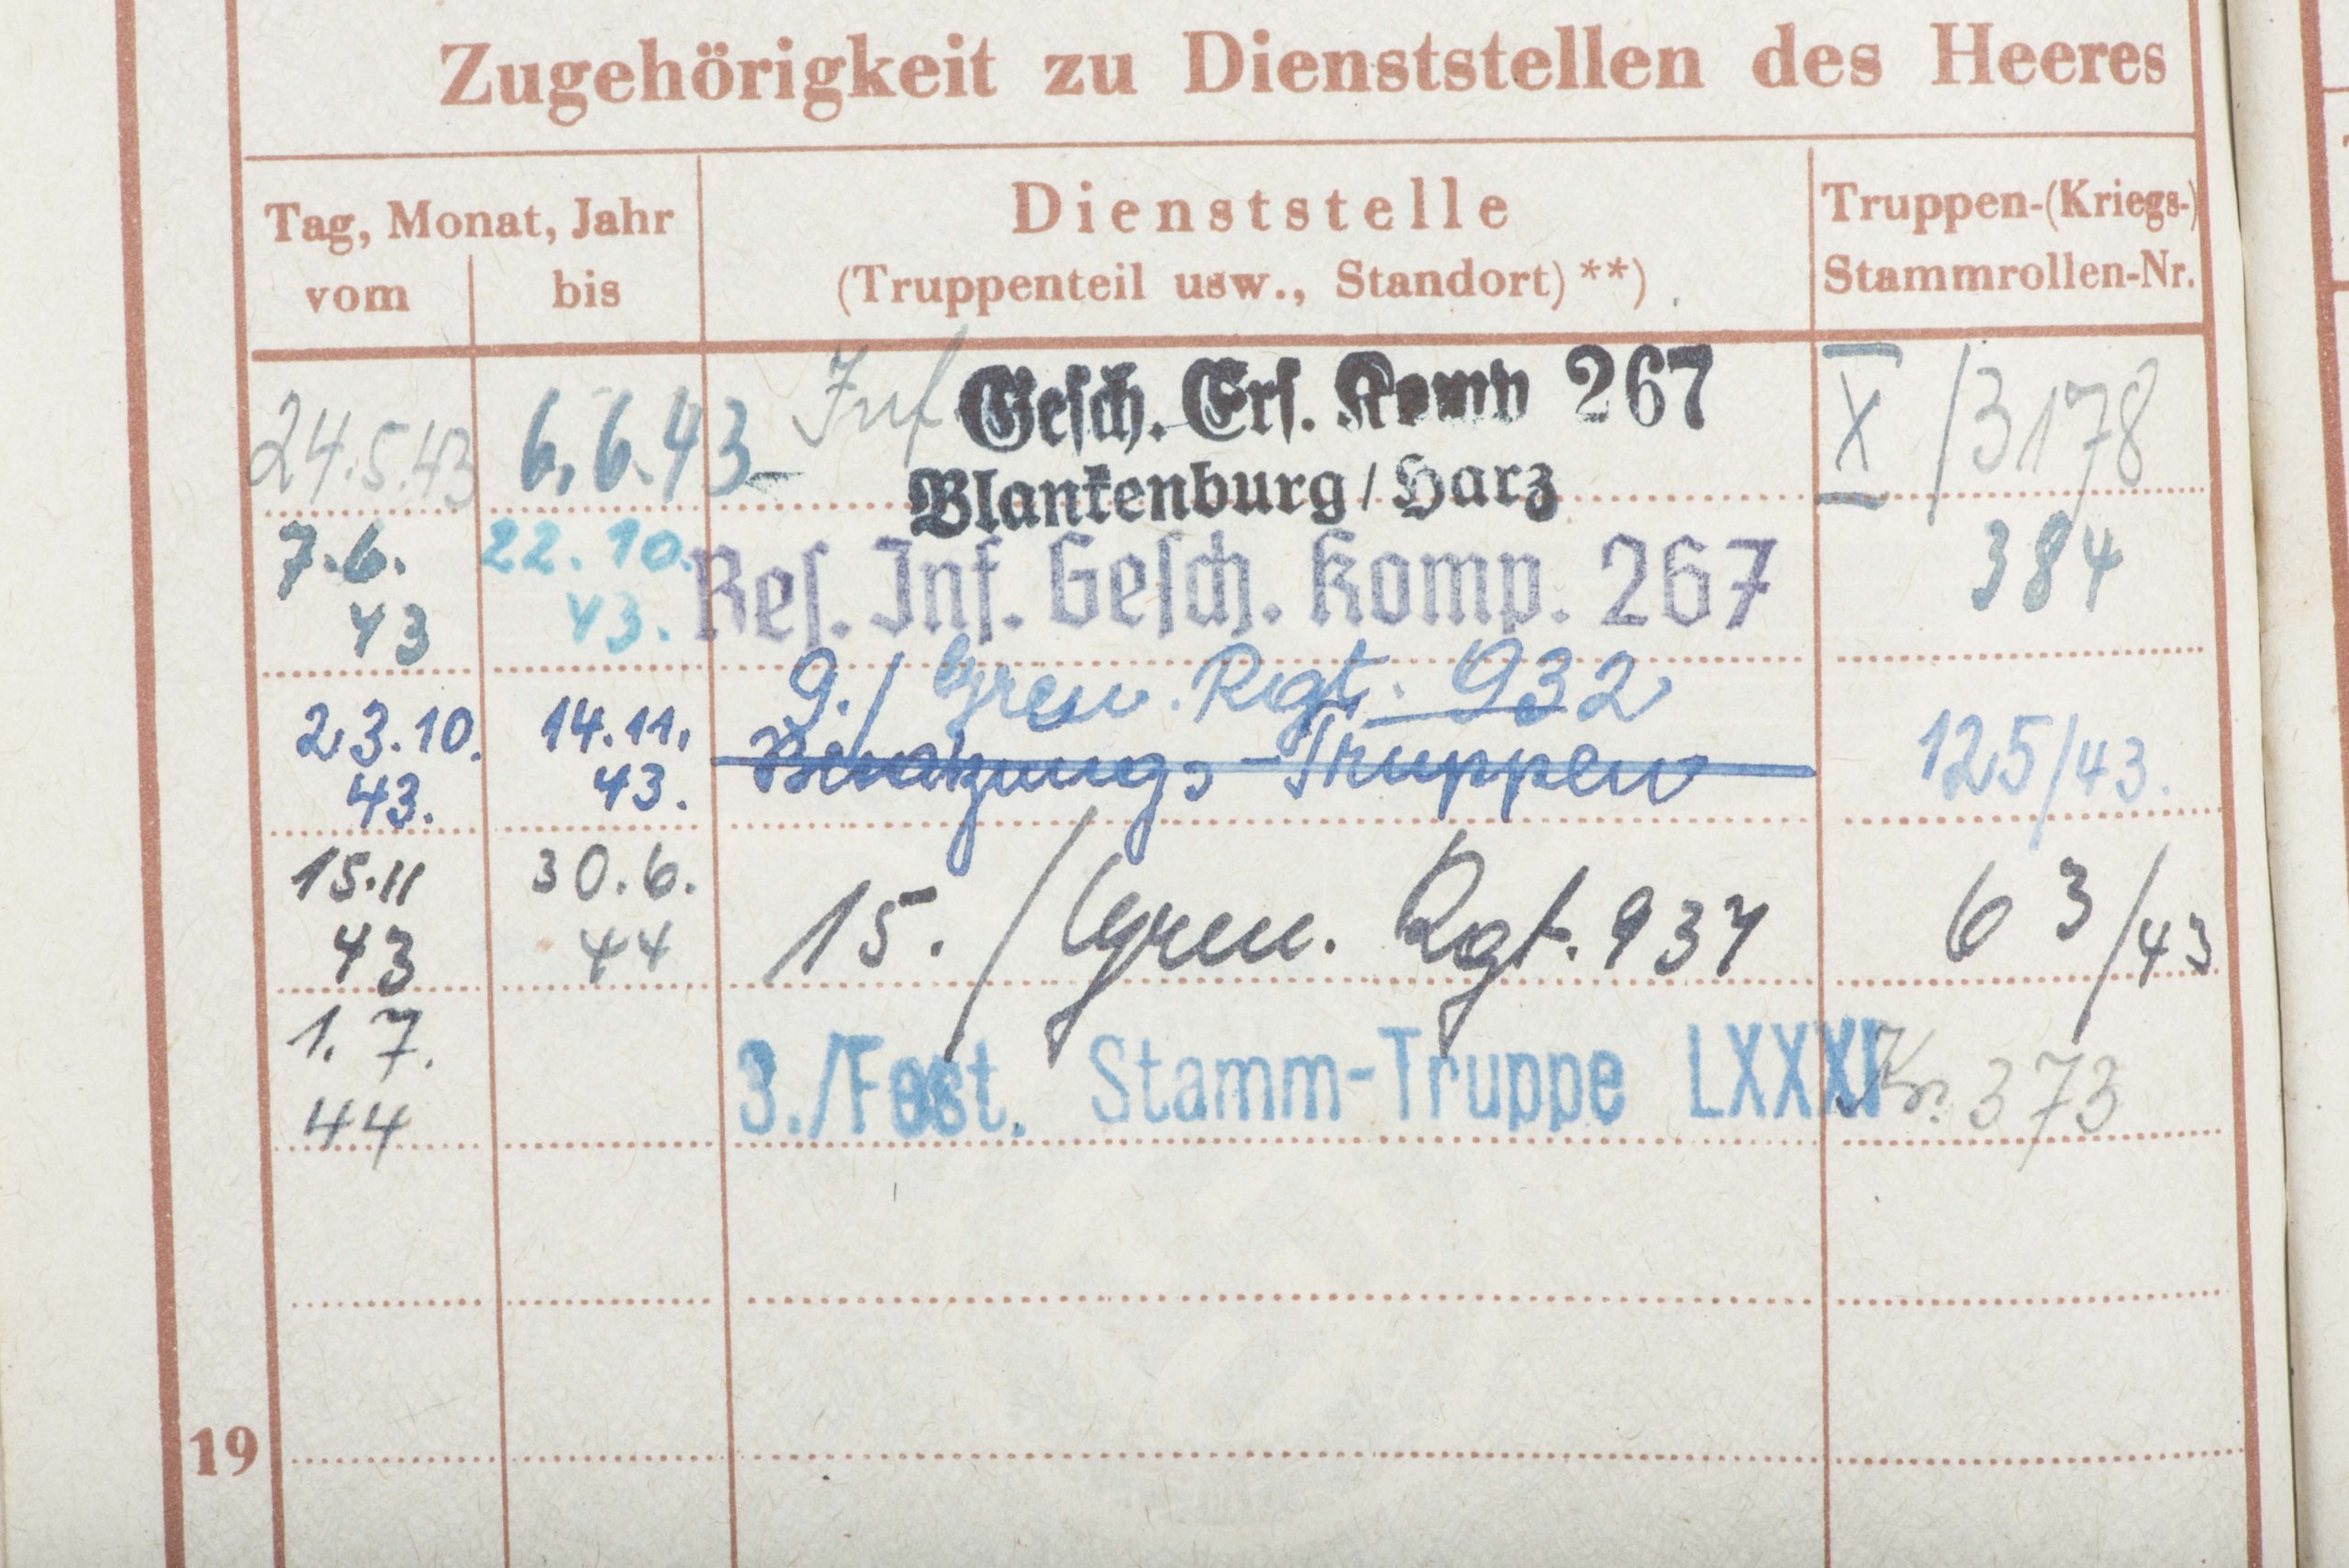 Zugehörigkeit zu Dienststellen des Heeres
Tag, Monat, Jahr
vom bis
Dienststelle
(Truppenteil usw., Standort)**)
Truppen-(Kriegs-)
Stammrollen-Nr.
24.5.43 6.6.43 Inf Gesch. Ers. Komp 267 X /3178
Blankenburg/Harz
7.6. 22.10. Res. Inf. Gesch. Komp. 267 384
43 43.
23.10. 14.11. 9./ Gren. Rgt. 932 125/43.
43. 43. Besatzungs-Truppen
15.11 30.6. 15./Gren. Rgt. 937 63/43
43 44
1.7. 3./Fest. Stamm-Truppe LXXXI 373
44
19